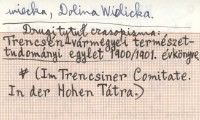 wiecka, Dolina Widlicka.
Drugi tytuł czasopisma:
Trencsén-vármegyei természet-
tudományi egylet 1900/1901. évkönyve
* (Im Trencsiner Comitate.
In der Hohen Tátra.)